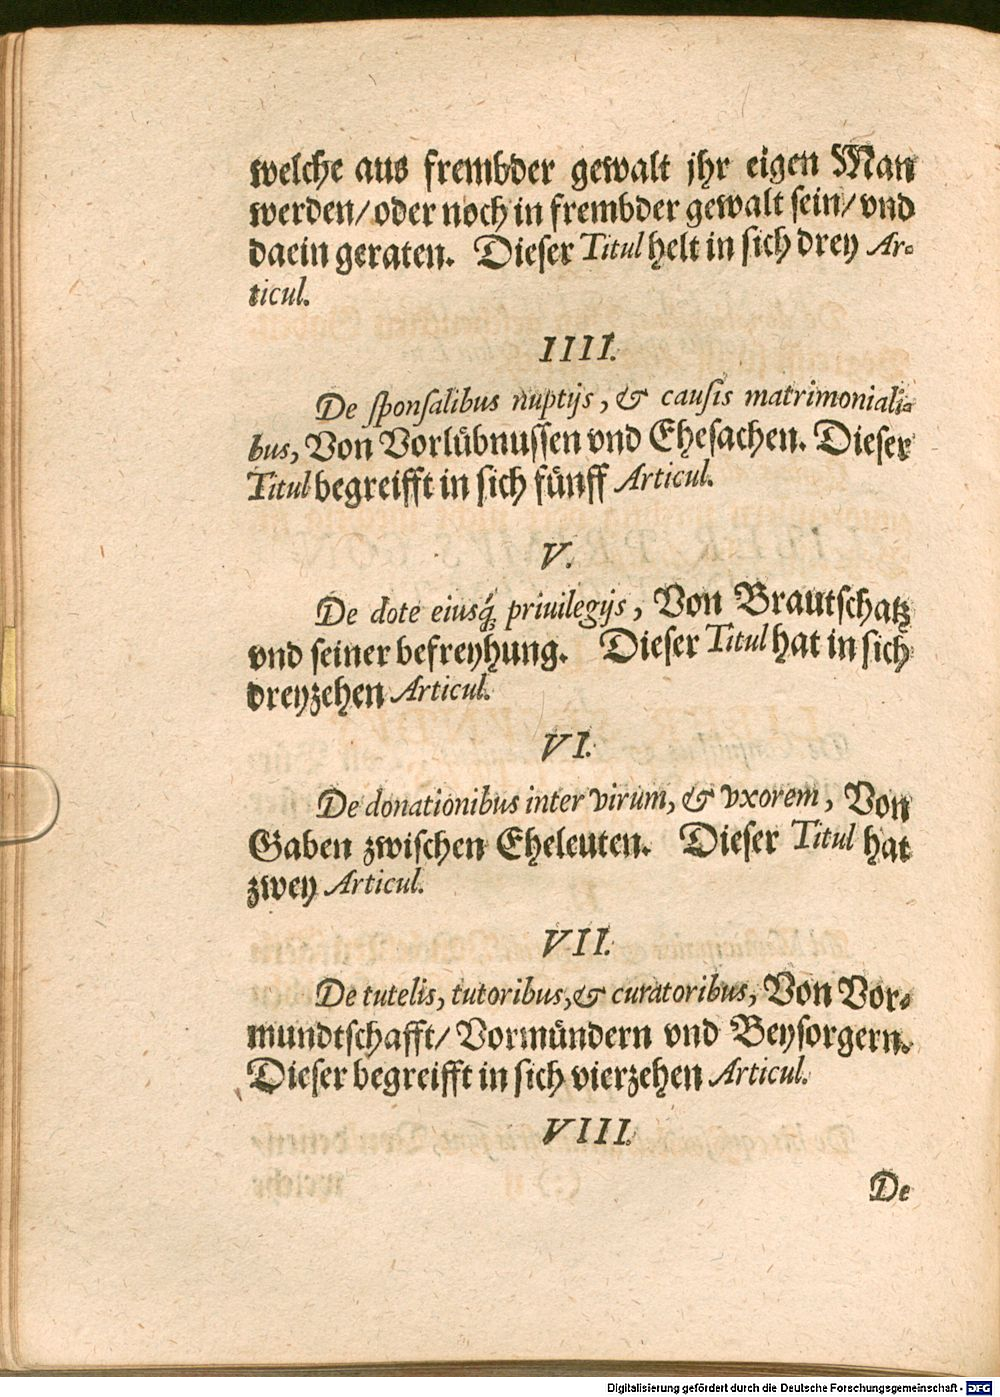 welche aus frembder gewalt jhr eigen Man
werden/ oder noch in frembder gewalt sein/ vnd
daein geraten. Dieser Titul helt in sich drey Ar-
ticul.
IIII.
De sponsalibus nuptijs, & causis matrimoniali-
bus, Von Vorlübnussen vnd Ehesachen. Dieser
Titul begreifft in sich fünff Articul.
V.
De dote eiusq́; priuilegijs, Von Brautschatz
vnd seiner befreyhung. Dieser Titul hat in sich
dreyzehen Articul.
VI.
De donationibus inter virum, & vxorem, Von
Gaben zwischen Eheleuten. Dieser Titul hat
zwey Articul.
VII.
De tutelis, tutoribus, & curatoribus, Von Vor-
mundtschafft/ Vormündern vnd Beysorgern.
Dieser begreifft in sich vierzehen Articul.
VIII.
De
Digitalisierung gefördert durch die Deutsche Forschungsgemeinschaft - DFG